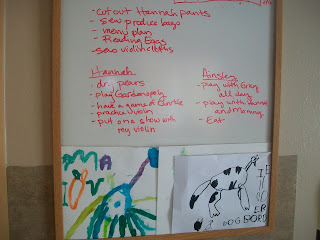 - cut out Hannah pants
- sew produce bags
- menu plan
- Reading Eggs
- sew violin cloths
Hannah
- dr. pears
- play Gardenopoly
- have a game of
- practice violin
- put on a show with
my violin
Ainsley
- play with Gray
all day
- play with Hannah
and Mommy
- Eat
DOG